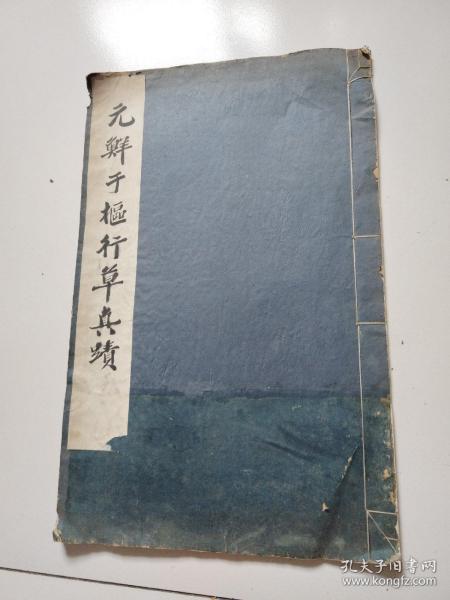 元鮮于樞行草真蹟
孔夫子旧书网
www.kongfz.com